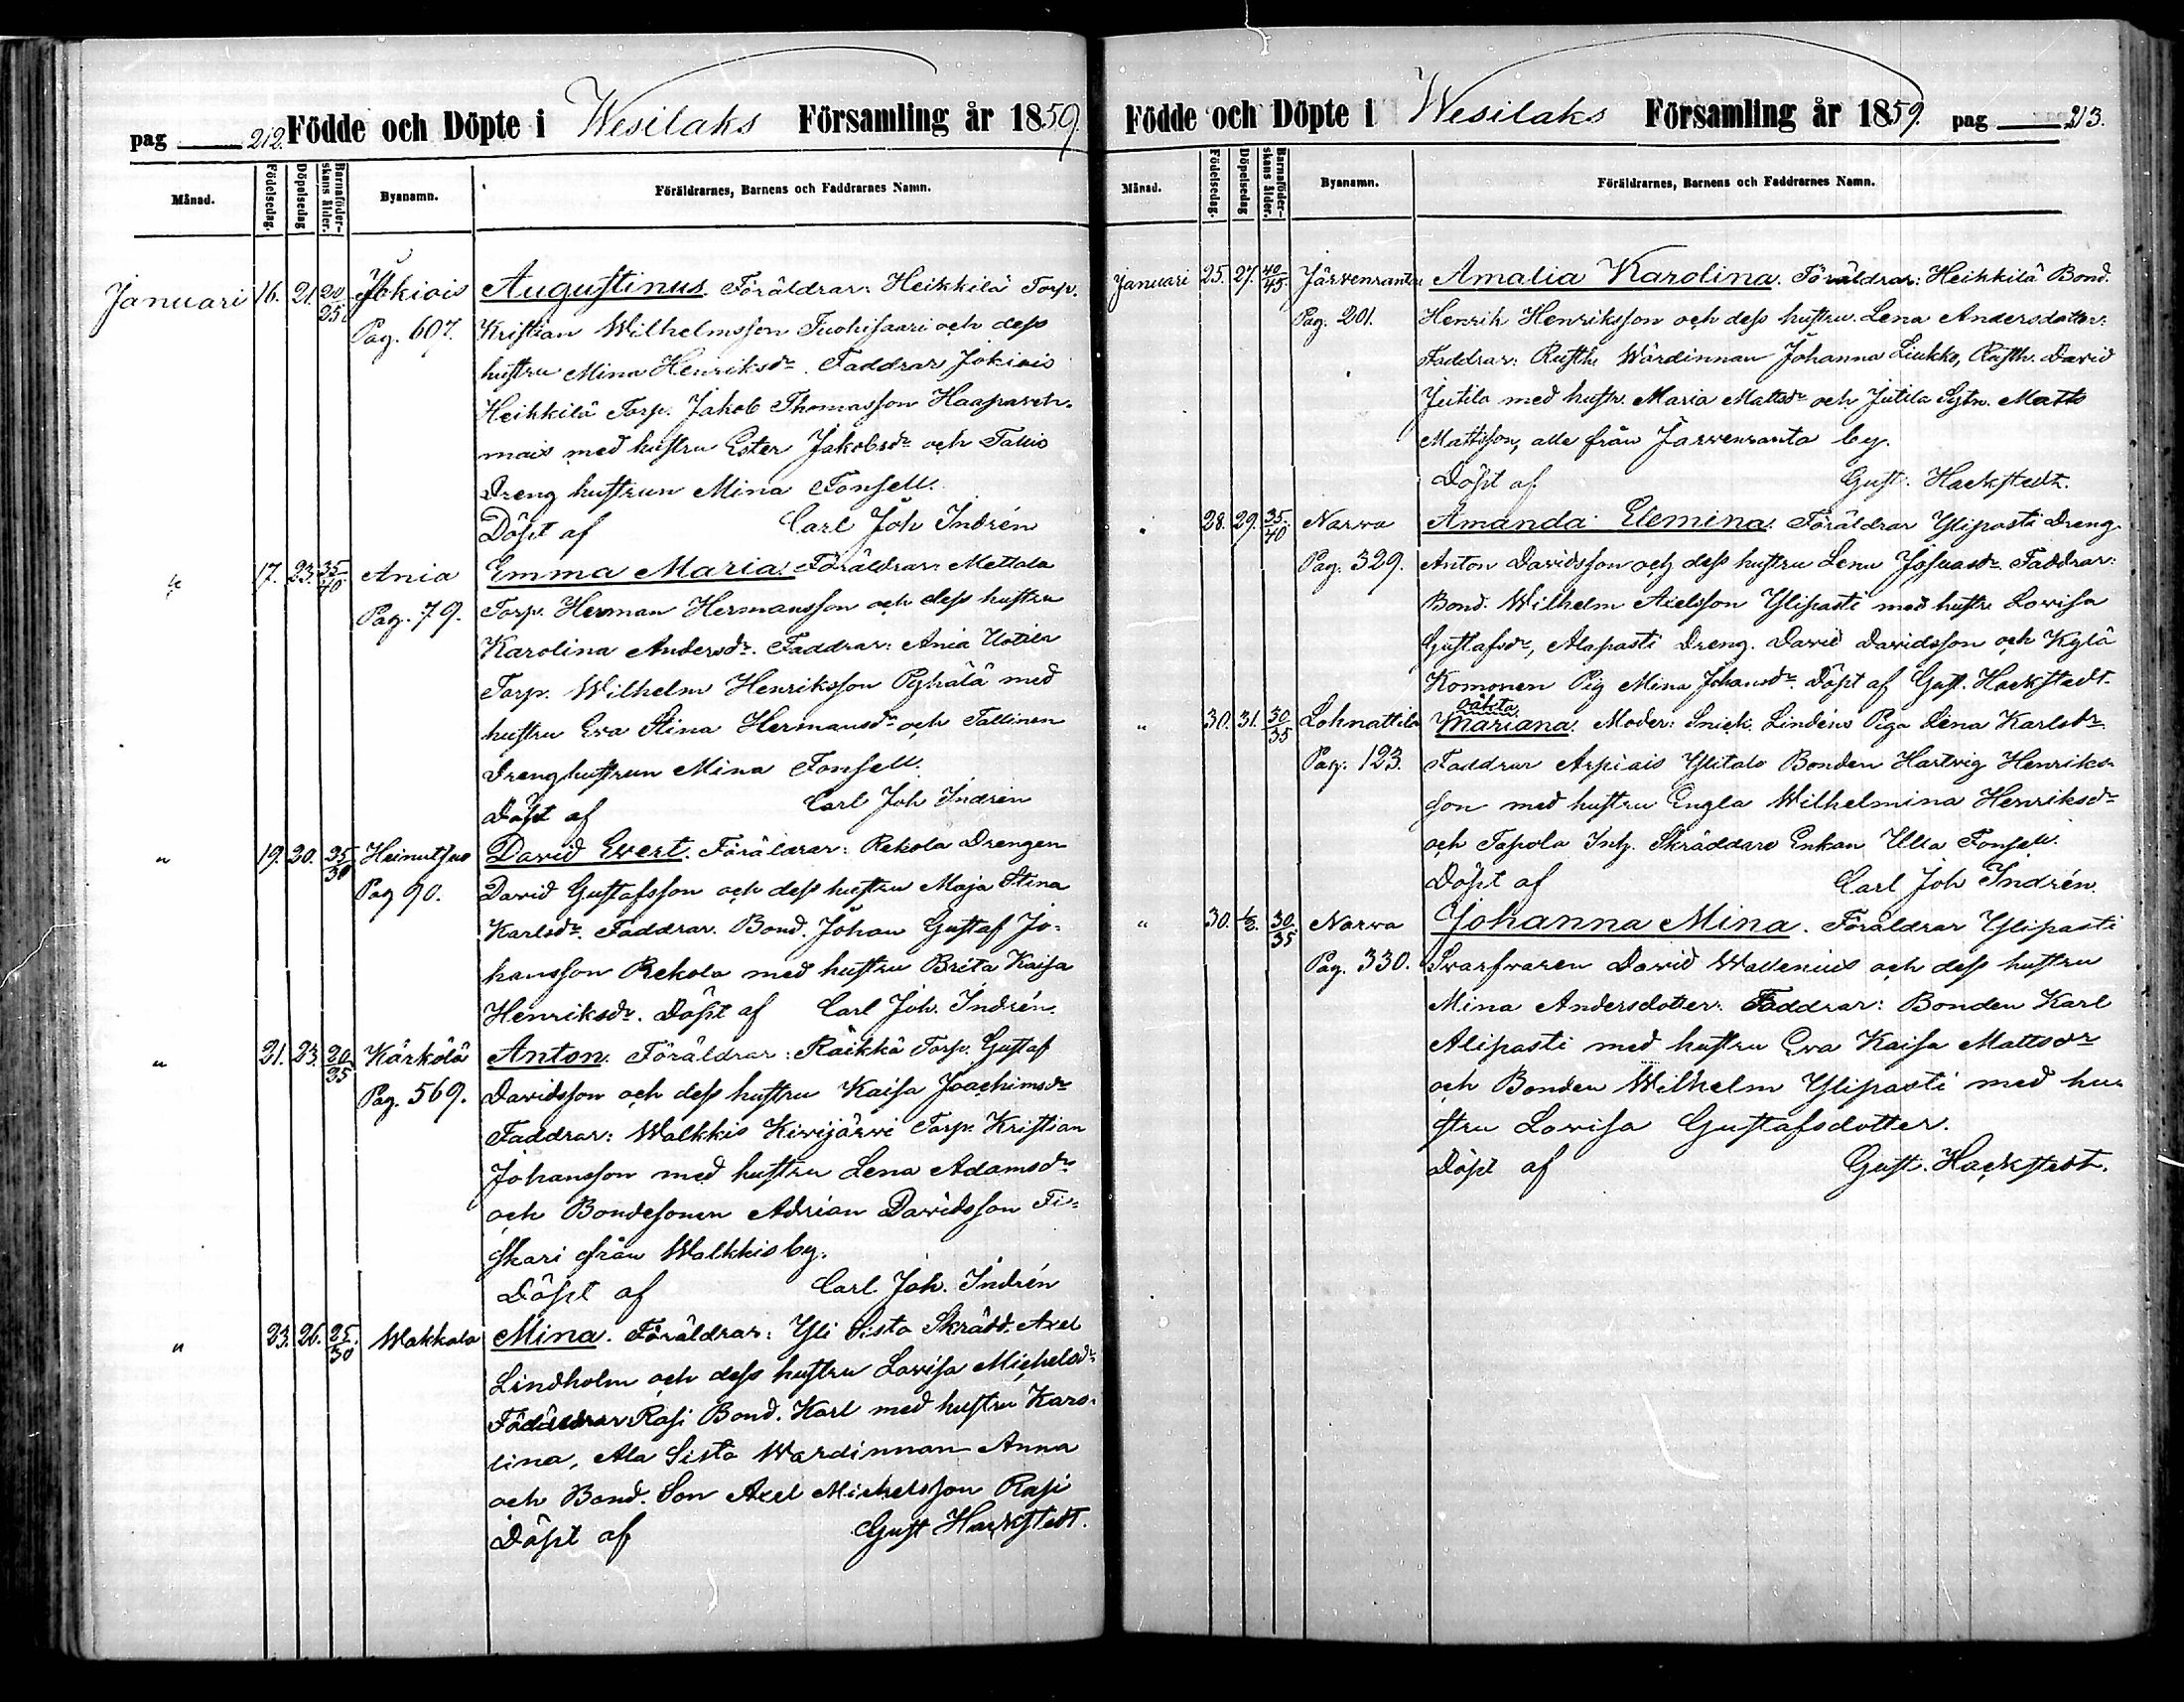 pag 212. Födde och Döpte i Wesilaks Församling år 1859.
Månad. Födelsedag. Döpelsedag Barnaföderskans ålder. Byanamn. Föräldrarnes, Barnens och Faddrarnes Namn.
Januari 16. 21 20/25 Jokiois Augustinus. Föräldrar: Heikkilä Torp.
Pag. 607. Kristian Wilhelmsson Tuohisaari och dess
hustru Mina Henriksdr. Faddrar Jokiois
Heikkilä Torp. Jakob Thomasson Haaparch-
mais med hustru Ester Jakobsdr och Tallis
Dreng hustrun Mina Fonsell.
Döpt af Carl Joh Indrén
" 17. 23. 35/40 Ania Emma Maria. Föräldrar: Mettala
Pag. 79. Torp. Herman Hermansson och dess hustru
Karolina Andersdr. Faddrar: Ania Uotila
Torp. Wilhelm Henriksson Pyhälä med
hustru Eva Stina Hermansdr och Tallinen
Drenghustrun Mina Fonsell.
Döpt af Carl Joh Indrén
" 19. 20. 25/30 Heinutsuo David Evert. Föräldrar: Rekola Drengen
Pag 90. David Gustafsson och dess hustru Maja Stina
Karlsdr. Faddrar. Bond. Johan Gustaf Jo-
hansson Rekola med hustru Brita Kaisa
Henriksdr. Döpt af Carl Joh. Indrén.
" 21. 23. 20/35 Kärkölä Anton. Föräldrar: Räikkä Torp. Gustaf
Pag. 569. Davidsson och dess hustru Kaisa Joachimsdr
Faddrar: Walkkis Kivijärvi Torp. Kristian
Johansson med hustru Lena Adamsdr
och Bondesonen Adrian Davidsson Fi-
skari från Walkkis by.
Döpt af Carl Joh. Indrén
" 23. 26. 25/30 Wakkala Mina. Föräldrar: Yli Sista Skrädd. Axel
Lindholm och dess hustru Lovisa Michelsdr
Faddrar Rasi Bond. Karl med hustru Karo-
lina, Ala Sista Wärdinnan Anna
och Bond. Son Axel Michelsson Rasi
Döpt af Gust Hackstedt.
Födde och Döpte i Wesilaks Församling år 1859. pag 213.
Månad. Födelsedag. Döpelsedag Barnaföderskans ålder. Byanamn. Föräldrarnes, Barnens och Faddrarnes Namn.
Januari 25. 27. 40/45 Järvenranta Amalia Karolina. Föräldrar: Heikkilä Bond.
Pag. 201. Henrik Henriksson och dess hustru Lena Andersdotter.
Faddrar: Rusth. Wärdinnan Johanna Liukko, Rusth. David
Jutila med hustr. Maria Mattsdr och Jutila Sytn. Matts
Mattsson, alla från Järvenranta by.
Döpt af Gust. Hackstedt.
" 28. 29. 35/40 Narva Amanda Elemina. Föräldrar Ylipasti Dreng
Pag. 329. Anton Davidsson och dess hustru Lena Josuasdr. Faddrar:
Bond. Wilhelm Axelsson Ylipasti med hustru Lovisa
Gustafsdr, Alapasti Dreng. David Davidsson och Kylä
Komonen Pig Mina Johansdr. Döpt af Gust. Hackstedt.
oäkta
" 30. 31. 30/35 Lohnattila Mariana. Moder: Snick. Lindéns Piga Lena Karlsdr.
Pag. 123. Faddrar Arpiais Ylitalo Bonden Hartvig Henriks-
son med hustru Engla Wilhelmina Henriksdr
och Tapola Inh. Skräddare Enkan Ulla Fonsell.
Döpt af Carl Joh Indrén.
" 30. 1/2. 30/35 Narva Johanna Mina. Föräldrar Ylipasti
Pag. 330. Svarfvaren David Wallenius och dess hustru
Mina Andersdotter. Faddrar: Bonden Karl
Alipasti med hustru Eva Kaisa Mattsdr
och Bonden Wilhelm Ylipasti med hu-
stru Lovisa Gustafsdotter.
Döpt af Gust. Hackstedt.